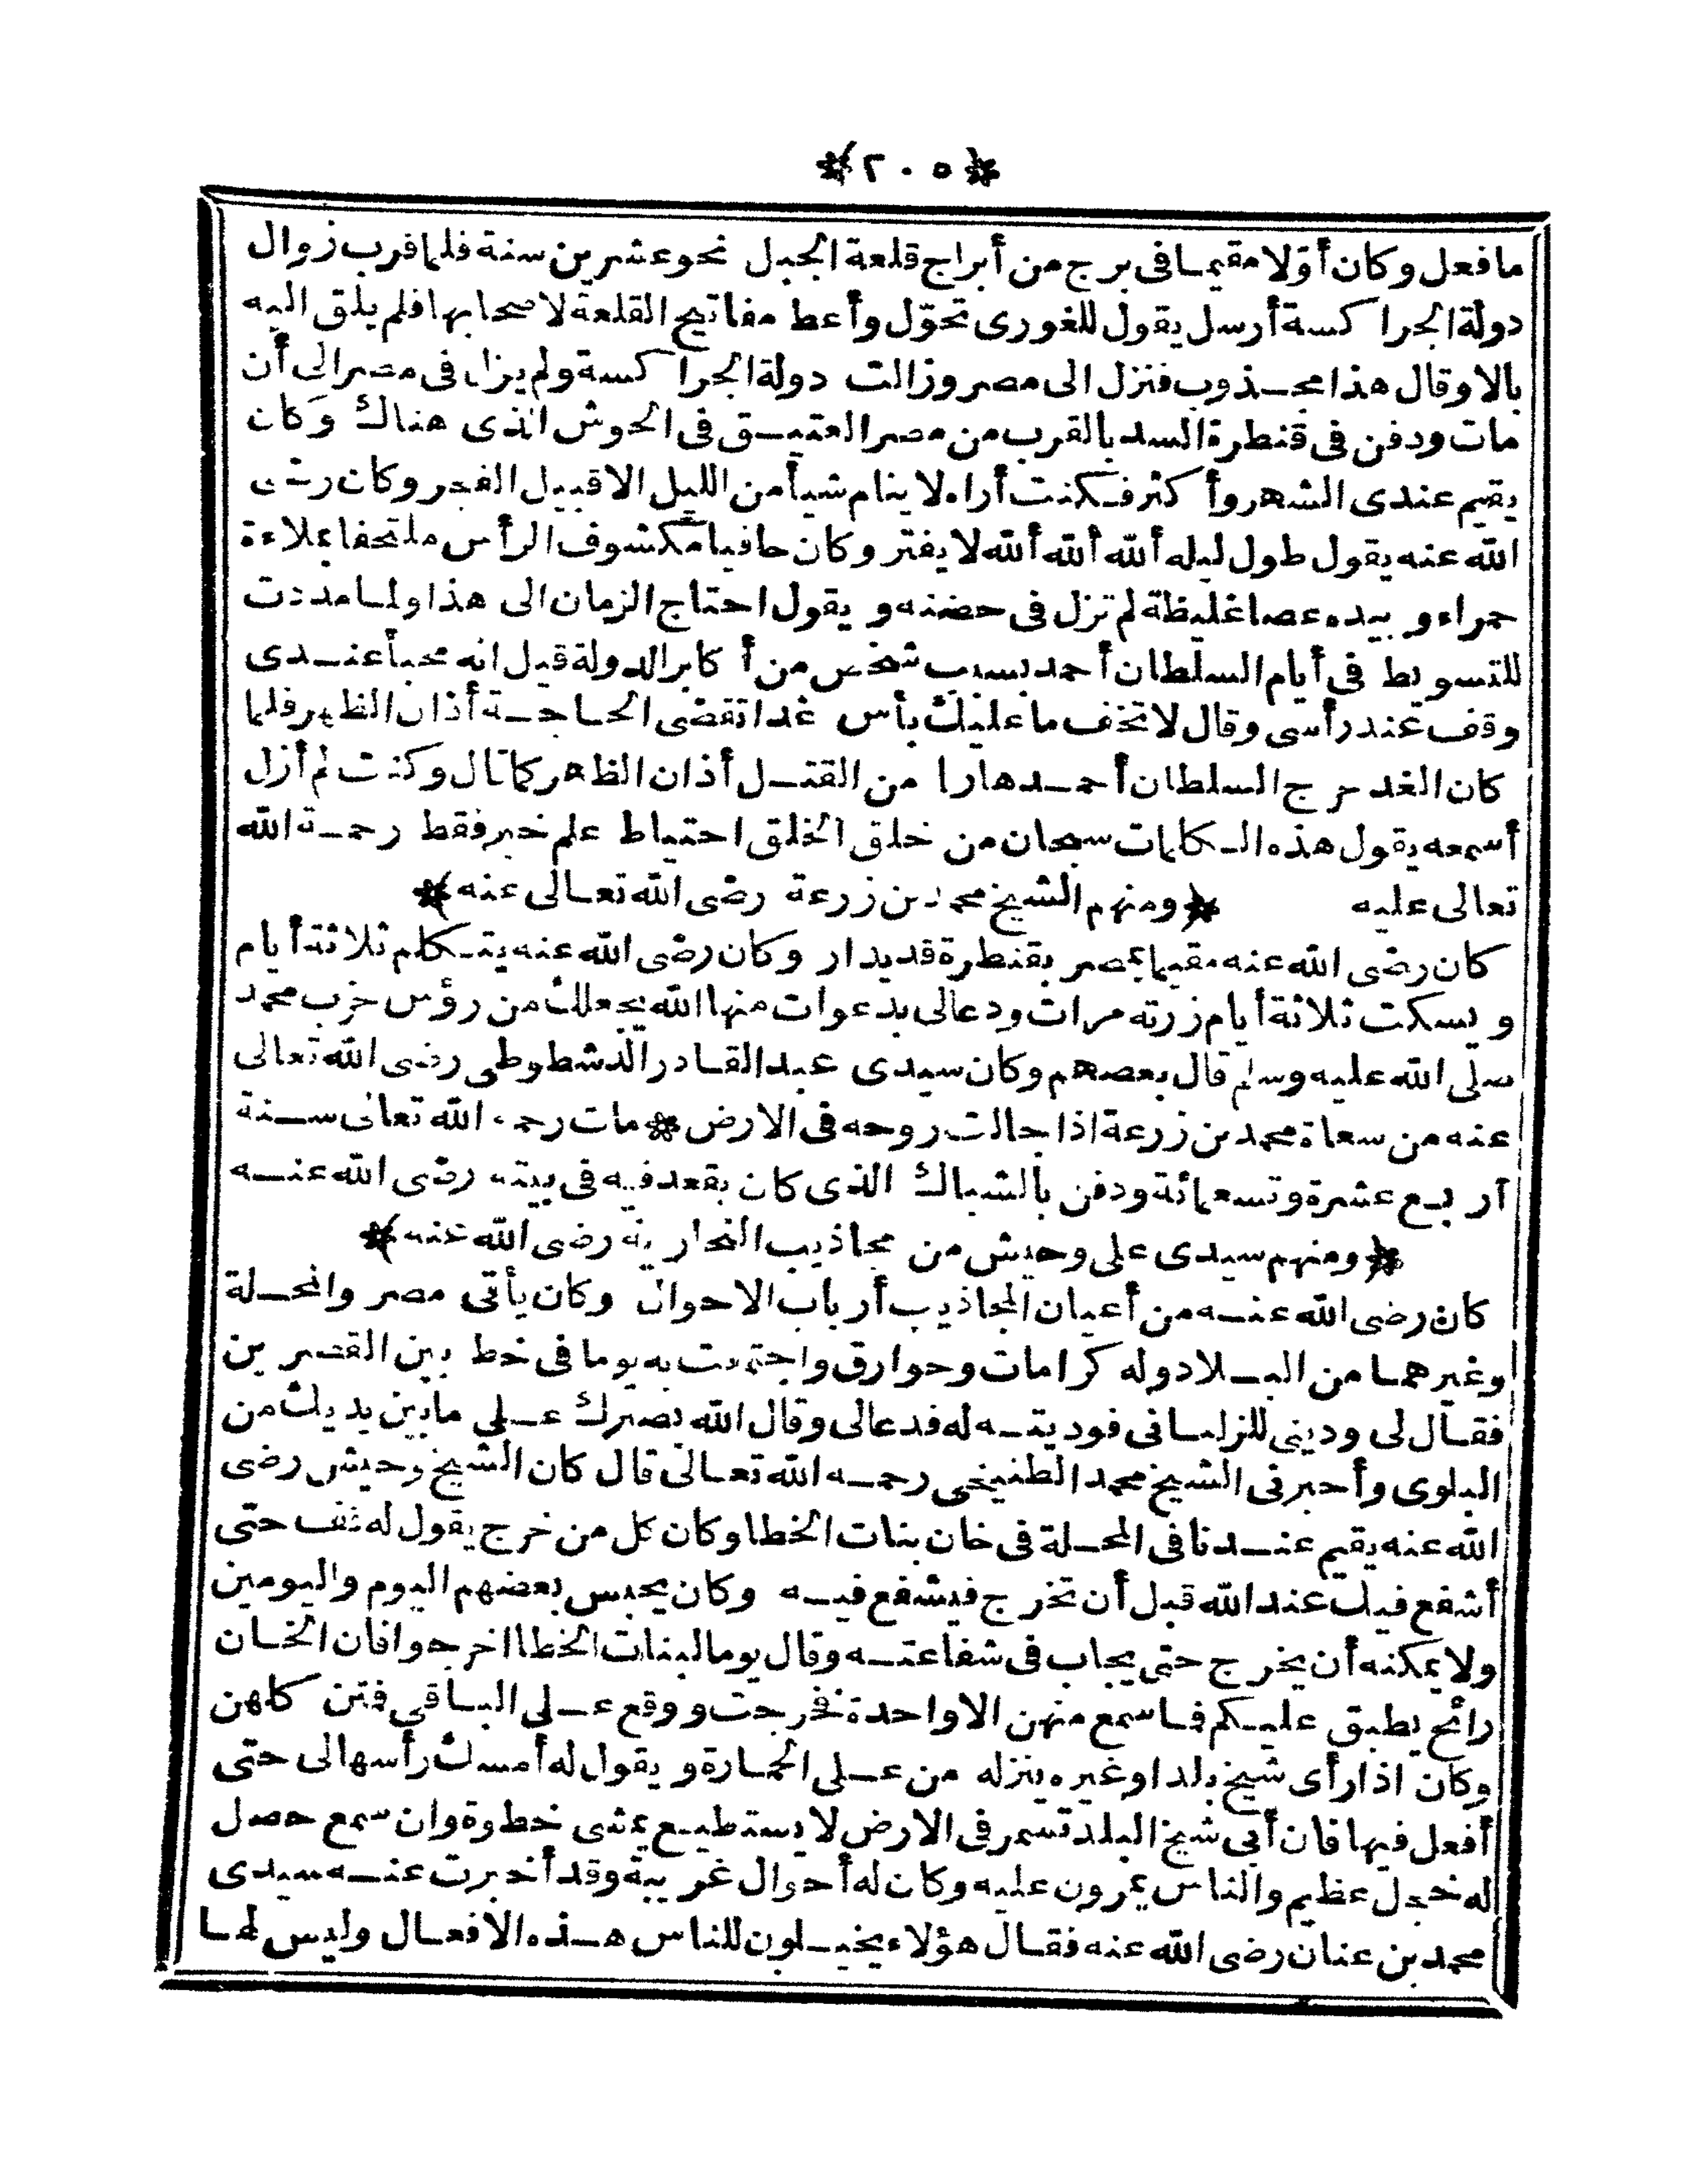 ﴿٢٠٥﴾
ما فعل وكان أوّلا مقيما فى برج من أبراج قلعة الجبل نحو عشرين سنة فلما قرب زوال
دولة الجراكسة أرسل يقول للغورى تحوّل وأعط مفاتيح القلعة لاصحابها فلم يلق اليه
بالا وقال هذا مجذوب فنزل الى مصر وزالت دولة الجراكسة ولم يزل فى مصر الى أن
مات ودفن فى قنطرة السد بالقرب من مصر العتيق فى الحوش الذى هناك وكان
يقيم عندى الشهر وأكثر فكنت أراه لا ينام شيأ من الليل الا قبيل الفجر وكان رضى
الله عنه يقول طول ليله ألله ألله ألله لا يفتر وكان حافيا مكشوف الرأس ملتحفا بملاءة
حمراء وبيده عصا غليظة لم تزل فى حضنه ويقول احتاج الزمان الى هذا ولما مددت
للتسويط فى أيام السلطان أحمد بسبب شخص من أكابر الدولة قيل انه مخبأ عندى
وقف عند رأسى وقال لا تخف ما عليك بأس غدا تقضى الحاجة أذان الظهر فلما
كان الغد خرج السلطان أحمد هاربا من القتل أذان الظهر كما قال وكنت لم أزل
أسمعه يقول هذه الكلمات سبحان من خلق الخلق احتياط علم خبر فقط رحمة الله
تعالى عليه ﴿ومنهم الشيخ محمد بن زرعة رضى الله تعالى عنه﴾
كان رضى الله عنه مقيما بمصر بقنطرة قديدار وكان رضى الله عنه يتكلم ثلاثة أيام
ويسكت ثلاثة أيام زرته مرات ودعا لى بدعوات منها الله يجعلك من رؤس حزب محمد
صلى الله عليه وسلم قال بعضهم وكان سيدى عبد القادر الدشطوطى رضى الله تعالى
عنه من سعاة محمد بن زرعة اذا جالت روحه فى الارض * مات رحمه الله تعالى سنة
أربع عشرة وتسعمائة ودفن بالشباك الذى كان يقعد فيه فى بيته رضى الله عنه
﴿ومنهم سيدى على وحيش من مجاذيب النحارية رضى الله عنه﴾
كان رضى الله عنه من أعيان المجاذيب أرباب الاحوال وكان يأتى مصر والمحلة
وغيرهما من البلاد وله كرامات وخوارق واجتمعت به يوما فى خط بين القصرين
فقال لى ودينى للزلبانى فوديته له فدعا لى وقال الله يصبرك على ما بين يديك من
البلوى وأخبرنى الشيخ محمد الطنيخى رحمه الله تعالى قال كان الشيخ وحيش رضى
الله عنه يقيم عندنا فى المحلة فى خان بنات الخطا وكان كل من خرج يقول له قف حتى
أشفع فيك عند الله قبل أن تخرج فيشفع فيه وكان يحبس بعضهم اليوم واليومين
ولا يمكنه أن يخرج حتى يجاب فى شفاعته وقال يوما لبنات الخطا اخرجوا فان الخان
رائح يطبق عليكم فما سمع منهن الا واحدة فخرجت ووقع على الباقى فمتن كلهن
وكان اذا رأى شيخ بلد أو غيره ينزله من على الحمارة ويقول له أمسك رأسها لى حتى
أفعل فيها فان أبى شيخ البلد تسمر فى الارض لا يستطيع يمشى خطوة وان سمع حصل
له خجل عظيم والناس يمرون عليه وكان له أحوال غريبة وقد أخبرت عنه سيدى
محمد بن عنان رضى الله عنه فقال هؤلاء يخيلون للناس هذه الافعال وليس لها